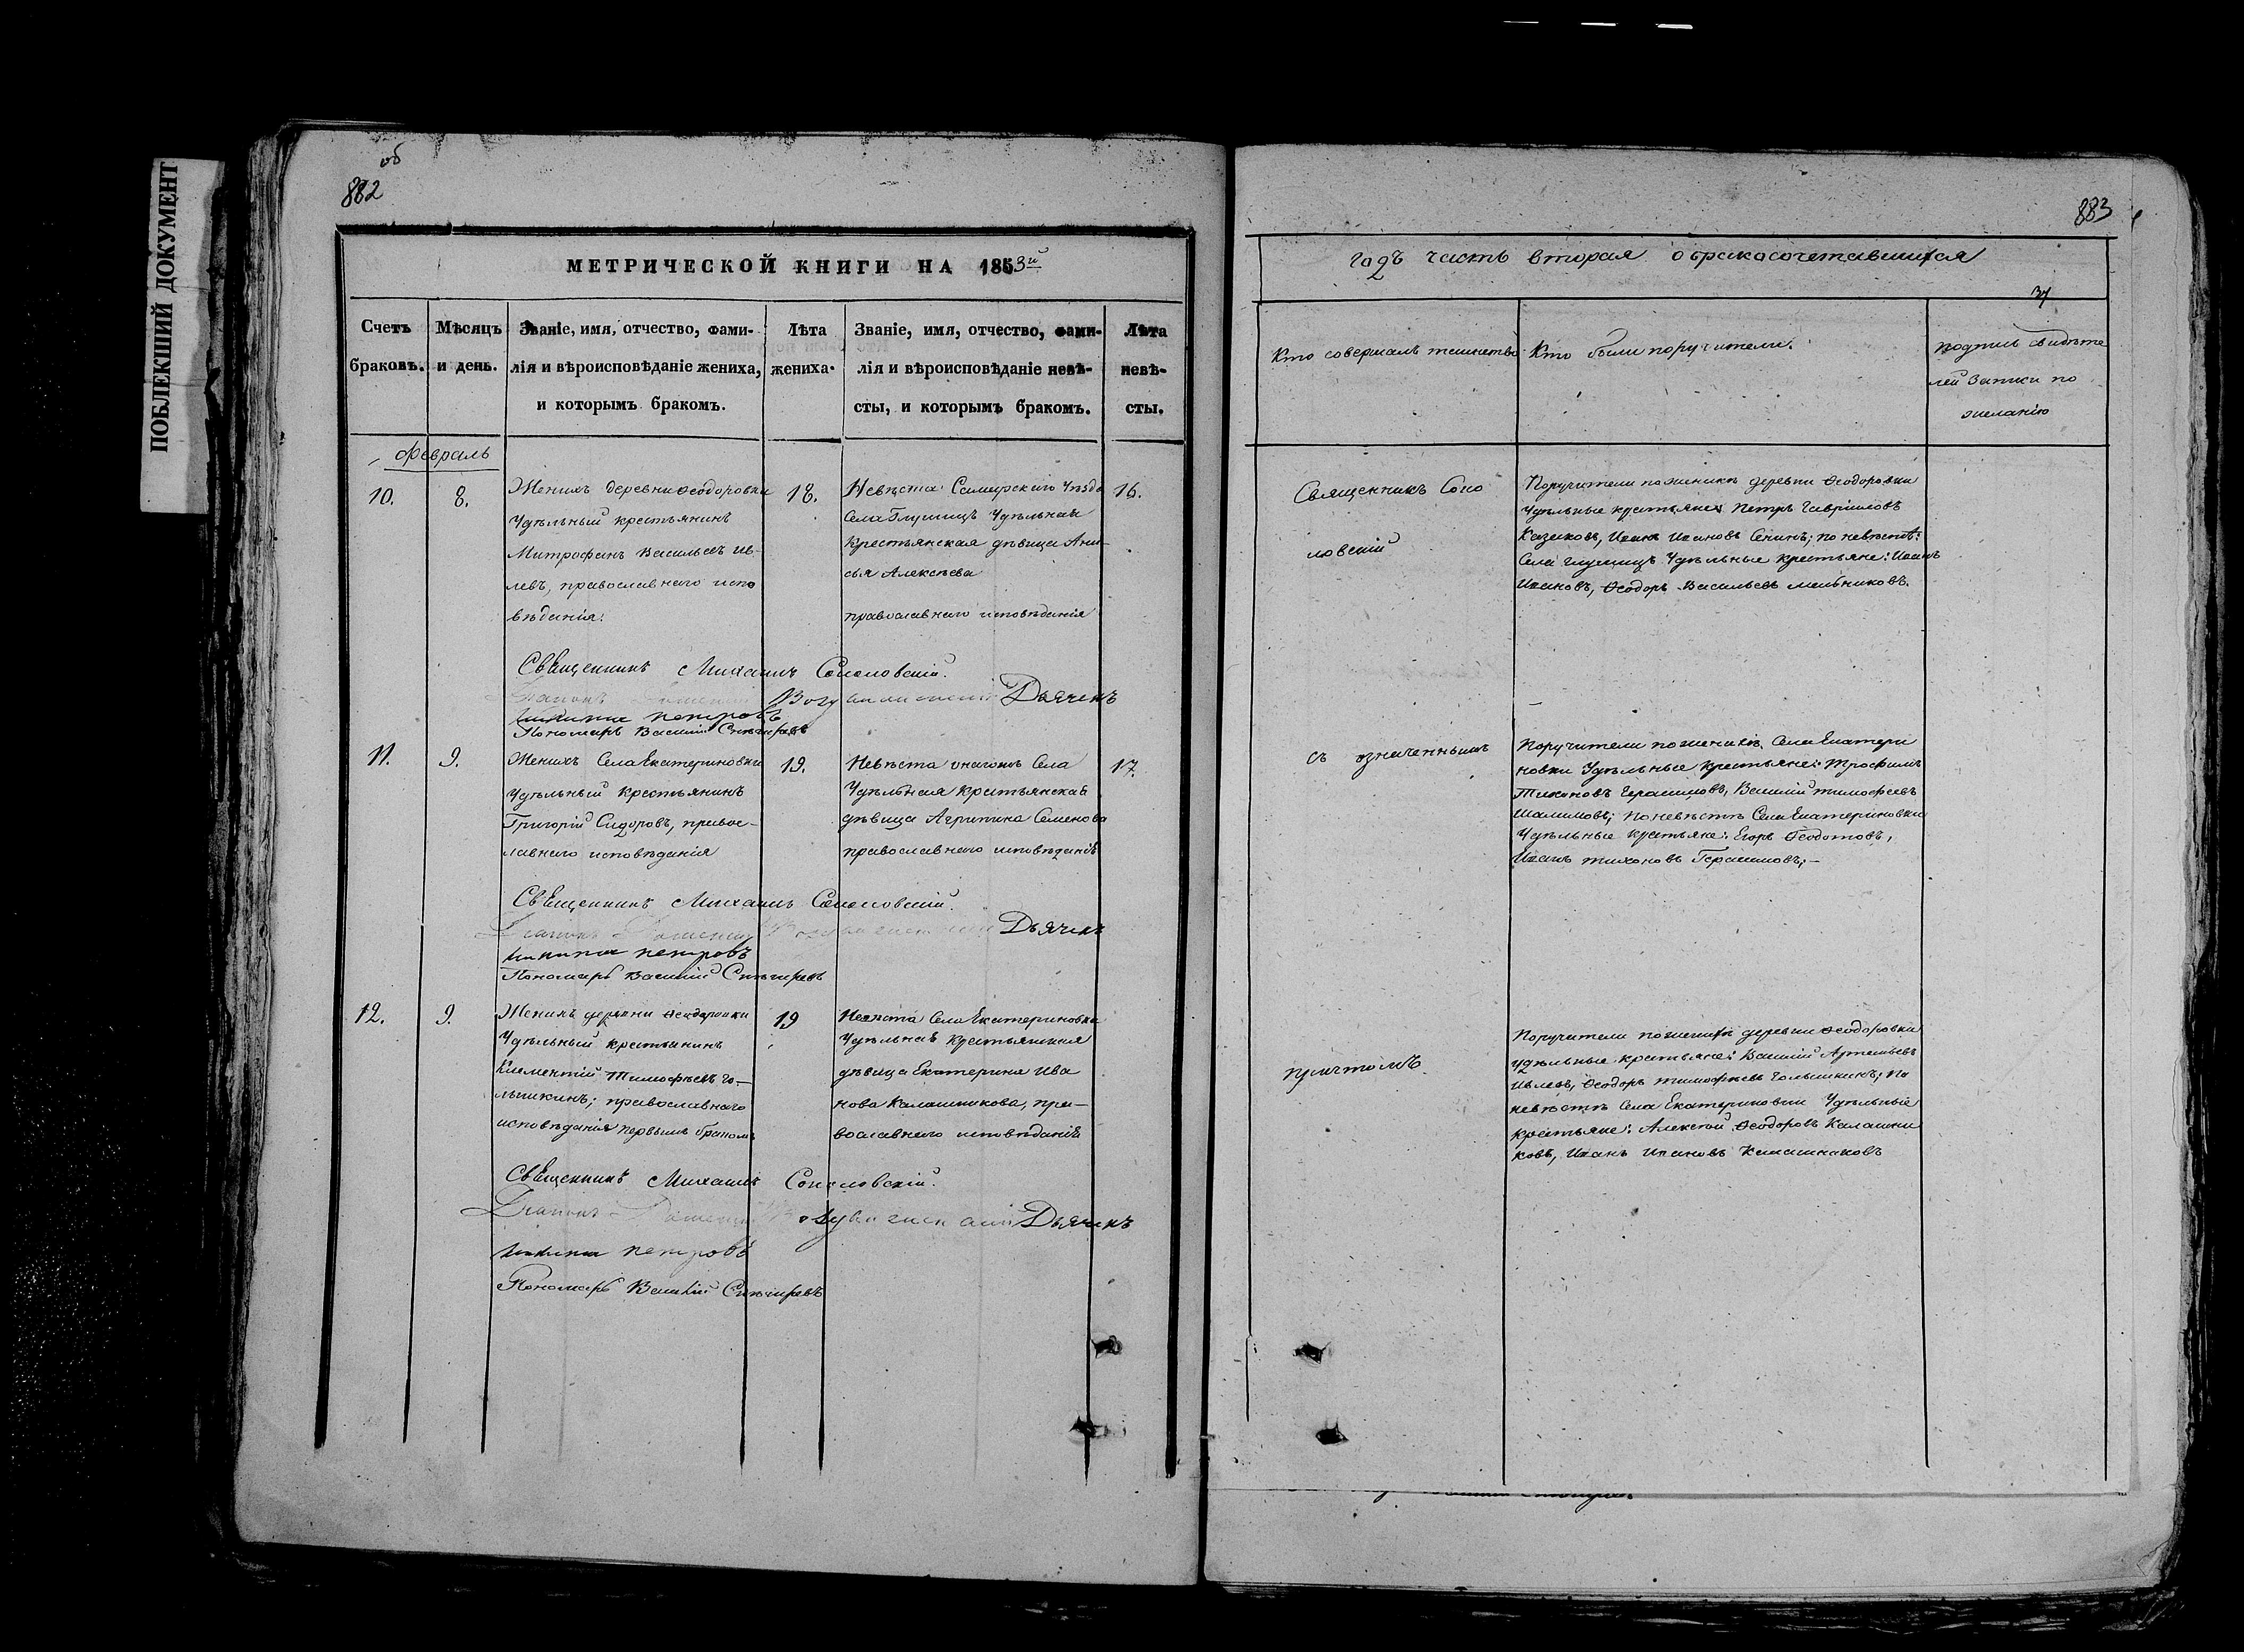 ПОБЛЕКШИЙ ДОКУМЕНТ
об
882
МЕТРИЧЕСКОЙ КНИГИ НА 1853й
Счетъ браковъ.
Мѣсяцъ и день.
Званіе, имя, отчество, фами-
лія и вѣроисповѣданіе жениха,
и которымъ бракомъ.
Лѣта
жениха.
Званіе, имя, отчество, фами-
лія и вѣроисповѣданіе невѣ-
сты, и которымъ бракомъ.
Лѣта
невѣ-
сты.
февраль
10.
8.
Женихъ деревни Ѳеодоровки
Удѣльный крестьянинъ
Митрофанъ Васильевъ Ив-
левъ, православнаго испо
вѣданія.
18.
Невѣста Самарскаго Уѣзда
Села Глушицъ Удѣльная
Крестьянская дѣвица Ани-
сья Алексѣева
православнаго исповѣданія
16.
Священникъ Михаилъ Соколовскій.
Діаконъ Дьячекъ
Никита Петровъ
Пономарь Василій Снѣгиревъ
11.
9.
Женихъ Села Екатериновки
Удѣльный Крестьянинъ
Григорій Сидоровъ, правос-
лавнаго исповѣданія
19.
Невѣста онагожъ Села
Удѣльная Крестьянская
дѣвица Агрипина Семенова
православнаго исповѣданія
17.
Священникъ Михаилъ Соколовскій.
Діаконъ Дьячекъ
Никита Петровъ
Пономарь Василій Снѣгиревъ
12.
9.
Женихъ деревни Ѳеодоровки
Удѣльный Крестьянинъ
Климентій Тимофѣевъ Го-
лышкинъ; православнаго
исповѣданія первымъ бракомъ
19
Невѣста Села Екатериновки
Удѣльная Крестьянская
дѣвица Екатерина Ива
нова Калашникова, пра-
вославнаго исповѣданія
Священникъ Михаилъ Соколовскій.
Діаконъ Дьячекъ
Никита Петровъ
Пономарь Василій Снѣгиревъ
883
годъ часть вторая о бракосочетавшихся
Кто совершалъ таинство
Кто были поручители.
подпись свидѣте
лей Записи по
желанію
Священникъ Соко
ловскій
Поручители по женихѣ деревни Ѳеодоровки
Удѣльные крестьяне: Петръ Гавриловъ
Казаковъ, Иванъ Ивановъ Сенинъ; по невѣстѣ:
Села Глушицъ Удѣльные Крестьяне: Иванъ
Ивановъ, Ѳеодоръ Васильевъ Мельниковъ.
съ означеннымъ
Поручители по женихѣ Села Екатери
новки Удѣльные Крестьяне: Трофимъ
Тихоновъ Герасимовъ, Василій Тимофеевъ
Шалимовъ; по невѣстѣ Села Екатериновки
Удѣльные Крестьяне: Егоръ Ѳедотовъ,
Иванъ Тихоновъ Герасимовъ;—
причтомъ.
Поручители по женихѣ деревни Ѳеодоровки
удѣльные крестьяне: Василій Артемьевъ
Ивлевъ, Ѳеодоръ Тимофѣевъ Голышкинъ; по
невѣстѣ Села Екатериновки Удѣльные
Крестьяне: Алексѣй Ѳеодоровъ Калашни
ковъ, Иванъ Ивановъ Калашниковъ